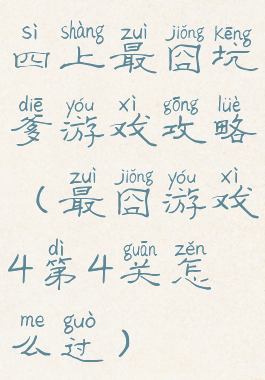 sì shàng zuì jiǒng kēng
四上最囧坑
diē yóu xì gōng lüè
爹游戏攻略
zuì jiǒng yóu xì
(最囧游戏
dì guān zěn
4第4关怎
me guò
么过)